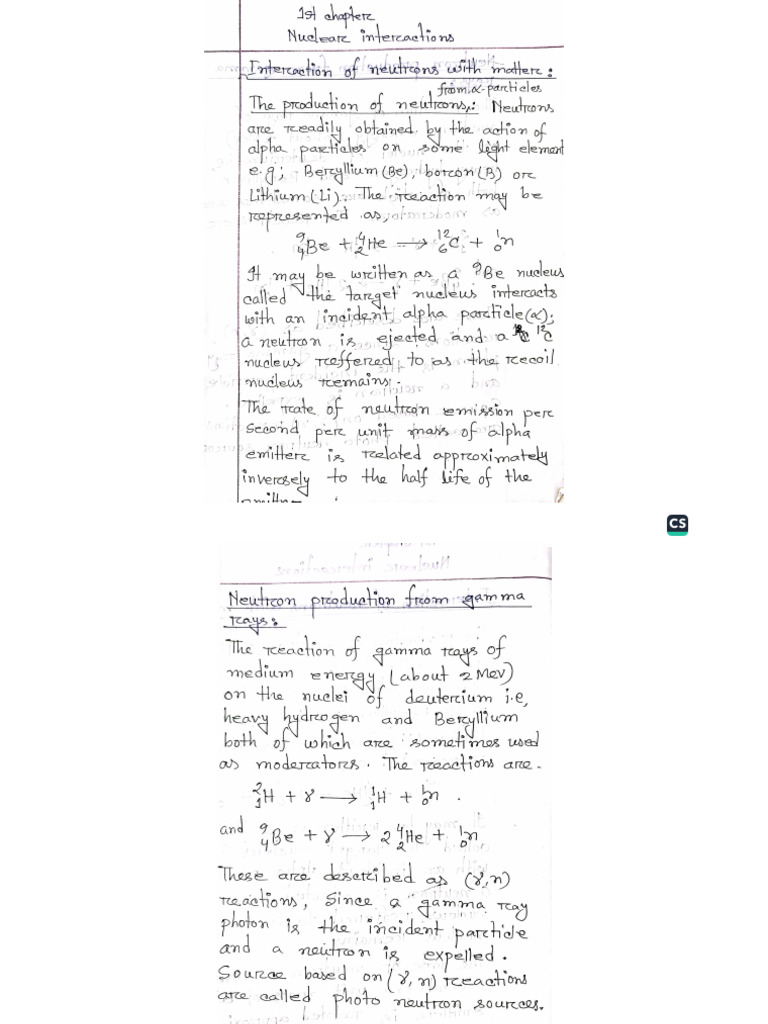 1st chapter
Nuclear interactions
Interaction of neutrons with matter:
from α-particles
The production of neutrons,: Neutrons
are readily obtained by the action of
alpha particles on some light element
e.g; Beryllium (Be), boron (B) or
Lithium (Li). The reaction may be
represented as,
⁹₄Be + ⁴₂He ⟶ ¹²₆C + ¹₀n
It may be written as a ⁹Be nucleus
called the target nucleus interacts
with an incident alpha particle (α);
a neutron is ejected and a ¹²C
nucleus reffered to as the recoil
nucleus remains.
The rate of neutron emission per
second per unit mass of alpha
emitter is related approximately
inversely to the half life of the
CS
Neutron production from gamma
rays:
The reaction of gamma rays of
medium energy (about 2 Mev)
on the nuclei of deuterium i.e,
heavy hydrogen and Beryllium
both of which are sometimes used
as moderators. The reactions are.
²₁H + γ ⟶ ¹₁H + ¹₀n .
and ⁹₄Be + γ ⟶ 2 ⁴₂He + ¹₀n
These are described as (γ,n)
reactions, Since a gamma ray
photon is the incident particle
and a neutron is expelled.
Source based on (γ, n) reactions
are called photo neutron sources.